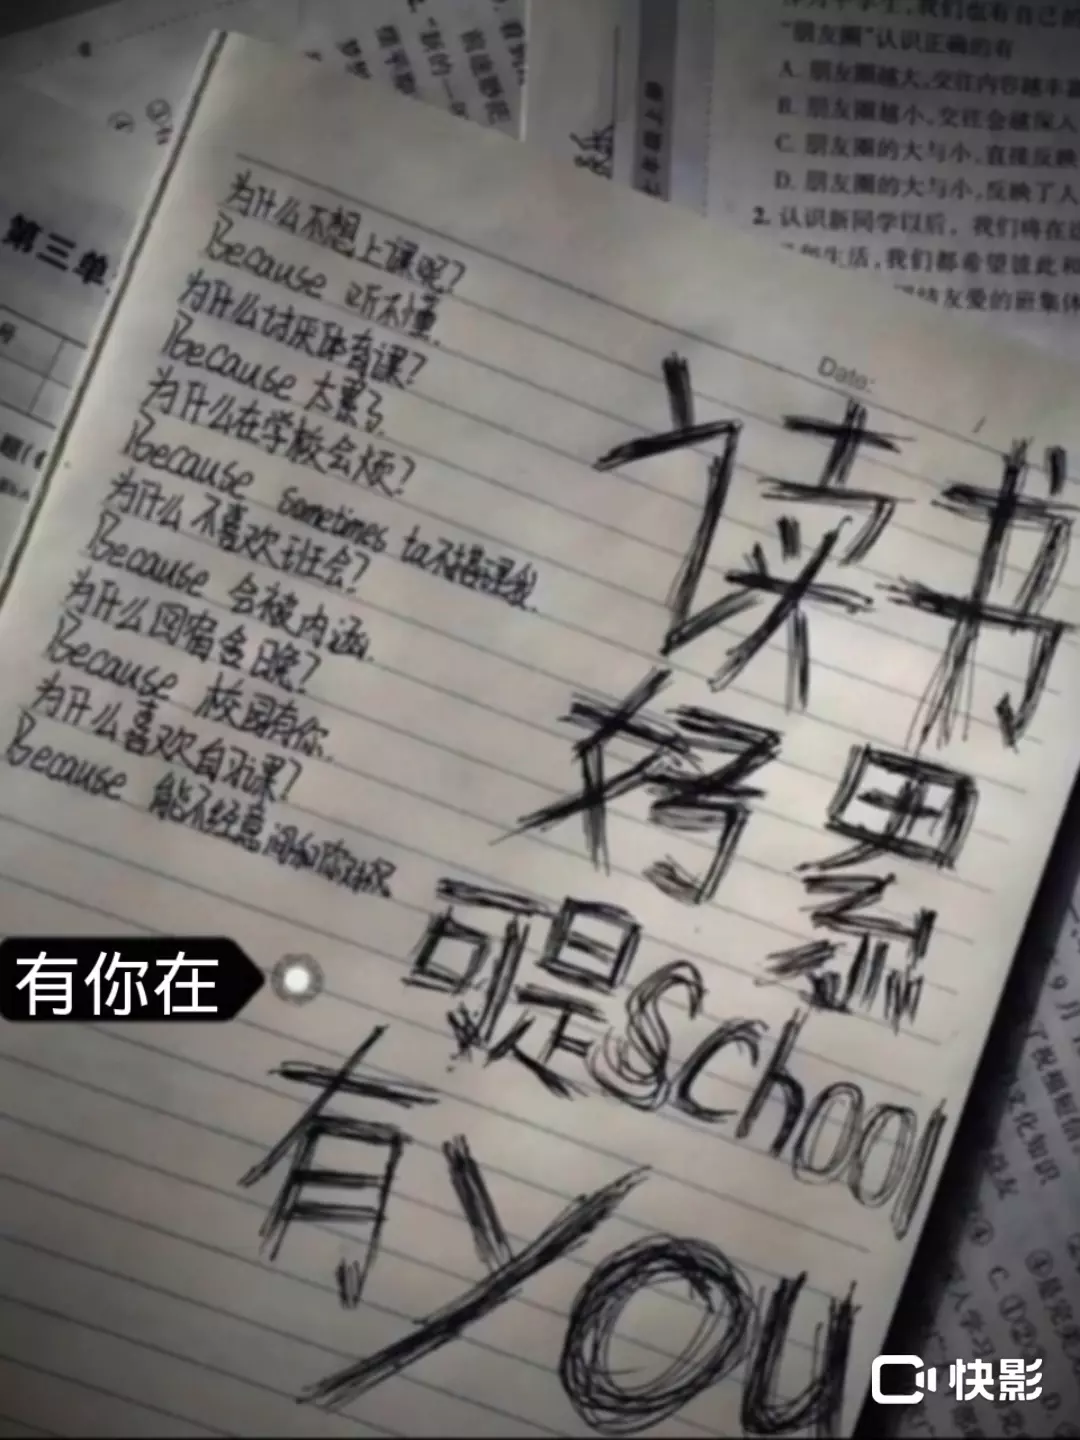 为什么不想上课呢?
Because 听不懂.
为什么讨厌体育课?
Because 太累了.
为什么在学校会烦?
Because sometimes ta不搭理我.
为什么不喜欢班会?
Because 会被内涵.
为什么回宿舍晚?
Because 校园有你.
为什么喜欢自习课?
Because 能不经意间和你对视
Date:
读书
好累
可是School
有you
有你在
快影
第三单
"朋友圈"认识正确的有
A. 朋友圈越大,交往内容越丰富
B. 朋友圈越小,交往会越深入
C. 朋友圈的大与小,直接反映
D. 朋友圈的大与小,反映了人
2. 认识新同学以后,我们将在这
生活,我们都希望彼此和
团结友爱的班集体